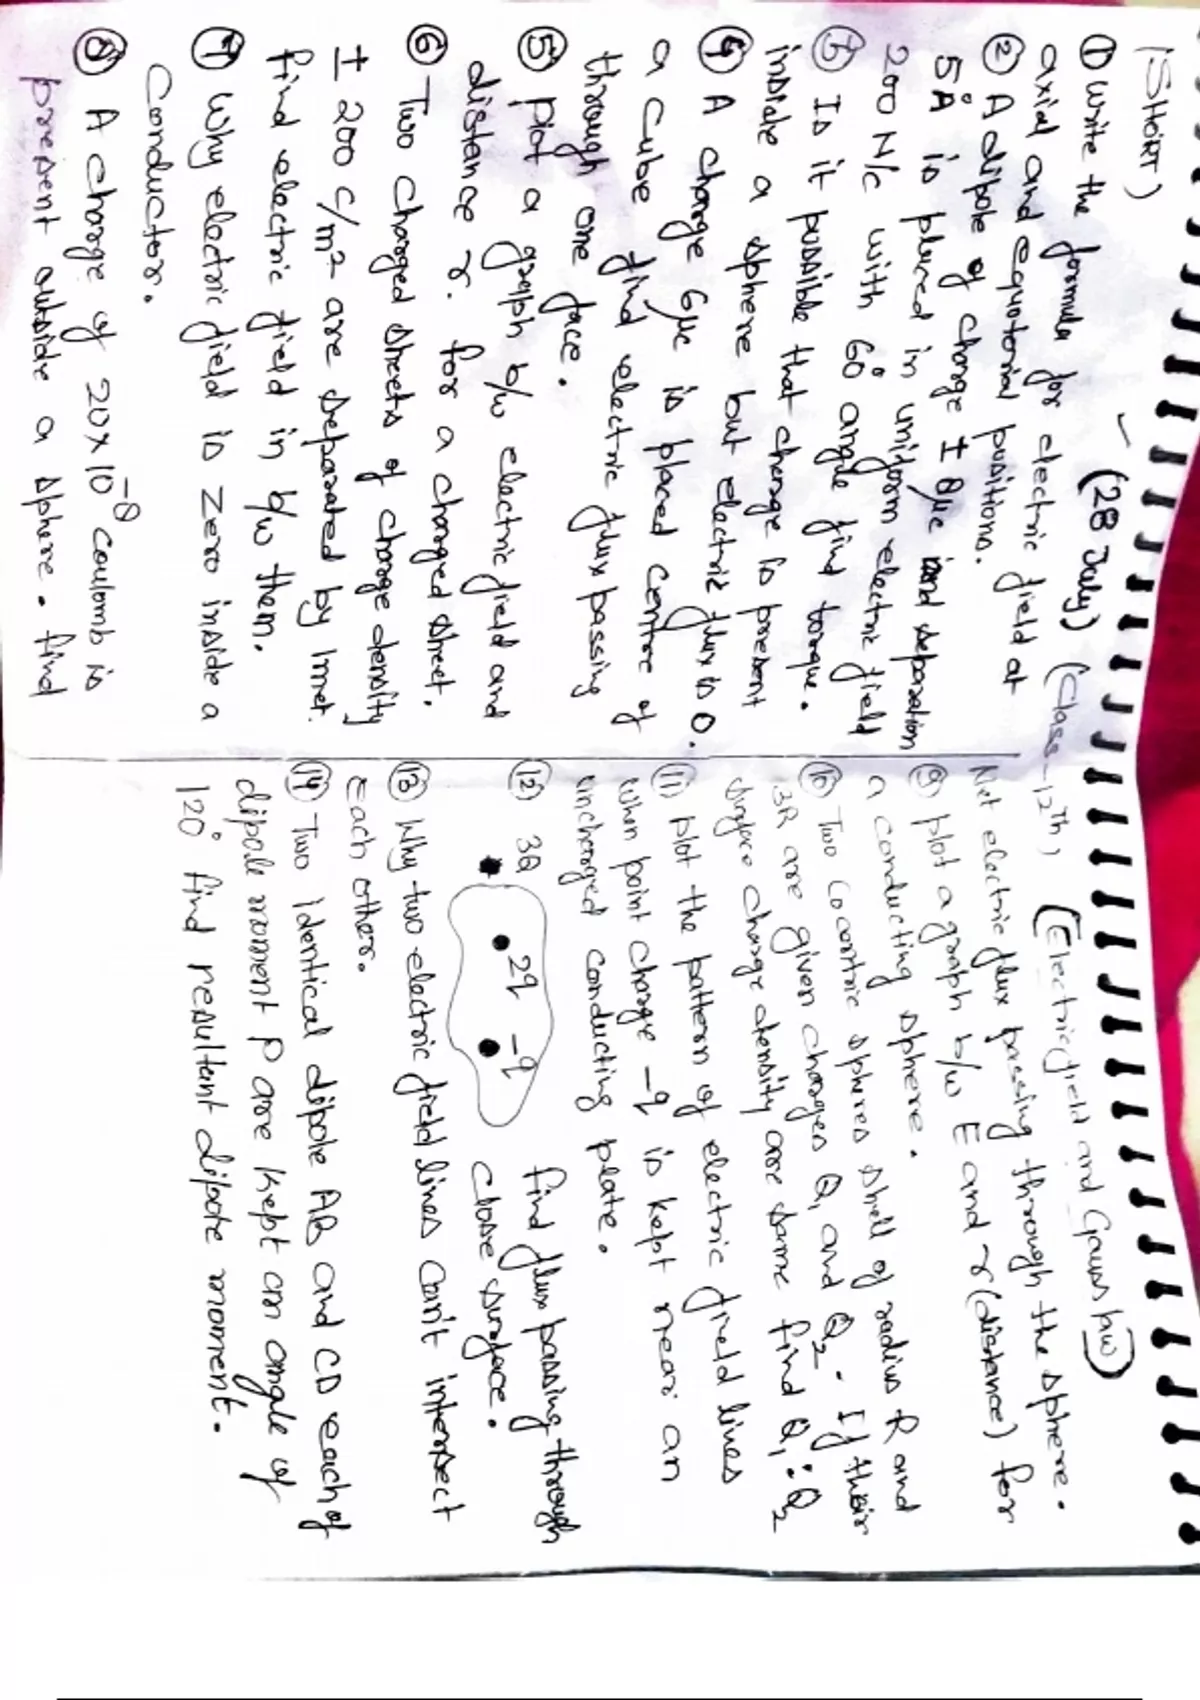 (SHORT)
- (28 July) (Class-12th) (Electric field and Gauss law)
① Write the formula for electric field at
axial and equatorial positions.
② A dipole of charge ± 8μc and separation
5Å is placed in uniform electric field
200 N/c with 60° angle find torque.
③ Is it possible that charge is present
inside a sphere but electric flux is 0.
④ A charge 6μc is placed centre of
a cube find electric flux passing
through one face.
⑤ plot a graph b/w electric field and
distance r. for a charged sheet.
⑥ Two charged sheets of charge density
± 200 c/m² are separated by 1met.
find electric field in b/w them.
⑦ Why electric field is zero inside a
Conductor.
⑧ A charge of 20×10⁻⁸ coulomb is
present outside a sphere. find
Net electric flux passing through the sphere.
⑨ plot a graph b/w E and r (distance) for
a conducting sphere.
⑩ Two cocentric spheres shell of radius R and
3R are given charges Q₁ and Q₂. If their
surface charge density are same find Q₁:Q₂
⑪ plot the pattern of electric field lines
when point charge -q is kept near an
uncharged conducting plate.
⑫ 3Q
2q -q
find flux passing through
close surface.
⑬ Why two electric field lines can't intersect
each other.
⑭ Two identical dipole AB and CD each of
dipole moment P are kept an angle of
120° find resultant dipole moment.